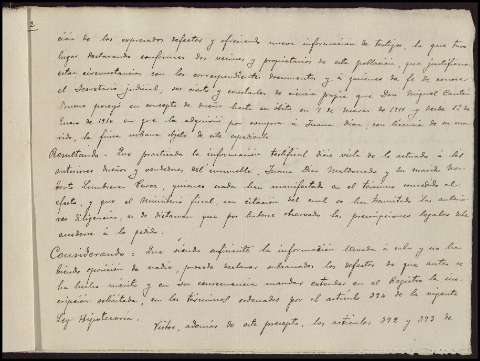 2
ción de los expresados defectos y ofreciendo nueva información de testigos, la que tuvo
lugar declarando conformes dos vecinos y propietarios de esta población, que justificaron
estas circunstancias con los correspondientes documentos y á quienes da fe de conocer
el Secretario judicial, ser cierto y constarles de ciencia propia que Don Miguel
poseyó en concepto de dueño hasta su óbito en 7 de de 1911 y desde 12 de
Enero de 1910 en que la adquirió por compra á Juana Díaz, con licencia de su ma-
rido, la finca urbana objeto de este expediente
Resultando: Que practicada la información testifical dióse vista de lo actuado á los
anteriores dueños y vendedores del inmueble, Juana Díaz Maldonado y su marido
Perez, quienes nada han manifestado en el término concedido al
efecto, y que el Ministerio fiscal, con citación del cual se han tramitado las anterio-
res diligencias, es de dictamen que por haberse observado las prescripciones legales debe
accederse á lo pedido.
Considerando: Que siendo suficiente la información llevada á cabo y no ha-
biendo oposición de nadie, procede declarar subsanados los defectos de que antes se
ha hecho mérito y en su consecuencia mandar extender en el Registro la ins-
cripción solicitada, en los términos ordenados por el artículo 394 de la vigente
Ley Hipotecaria.
Vistos, además de este precepto, los artículos 392 y 393 de